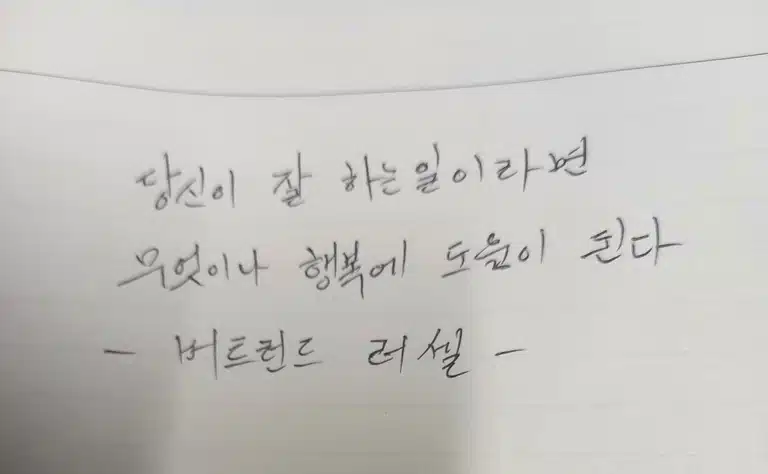 당신이 잘 하는일이라면
무엇이나 행복에 도움이 된다
- 버트런드 러셀 -